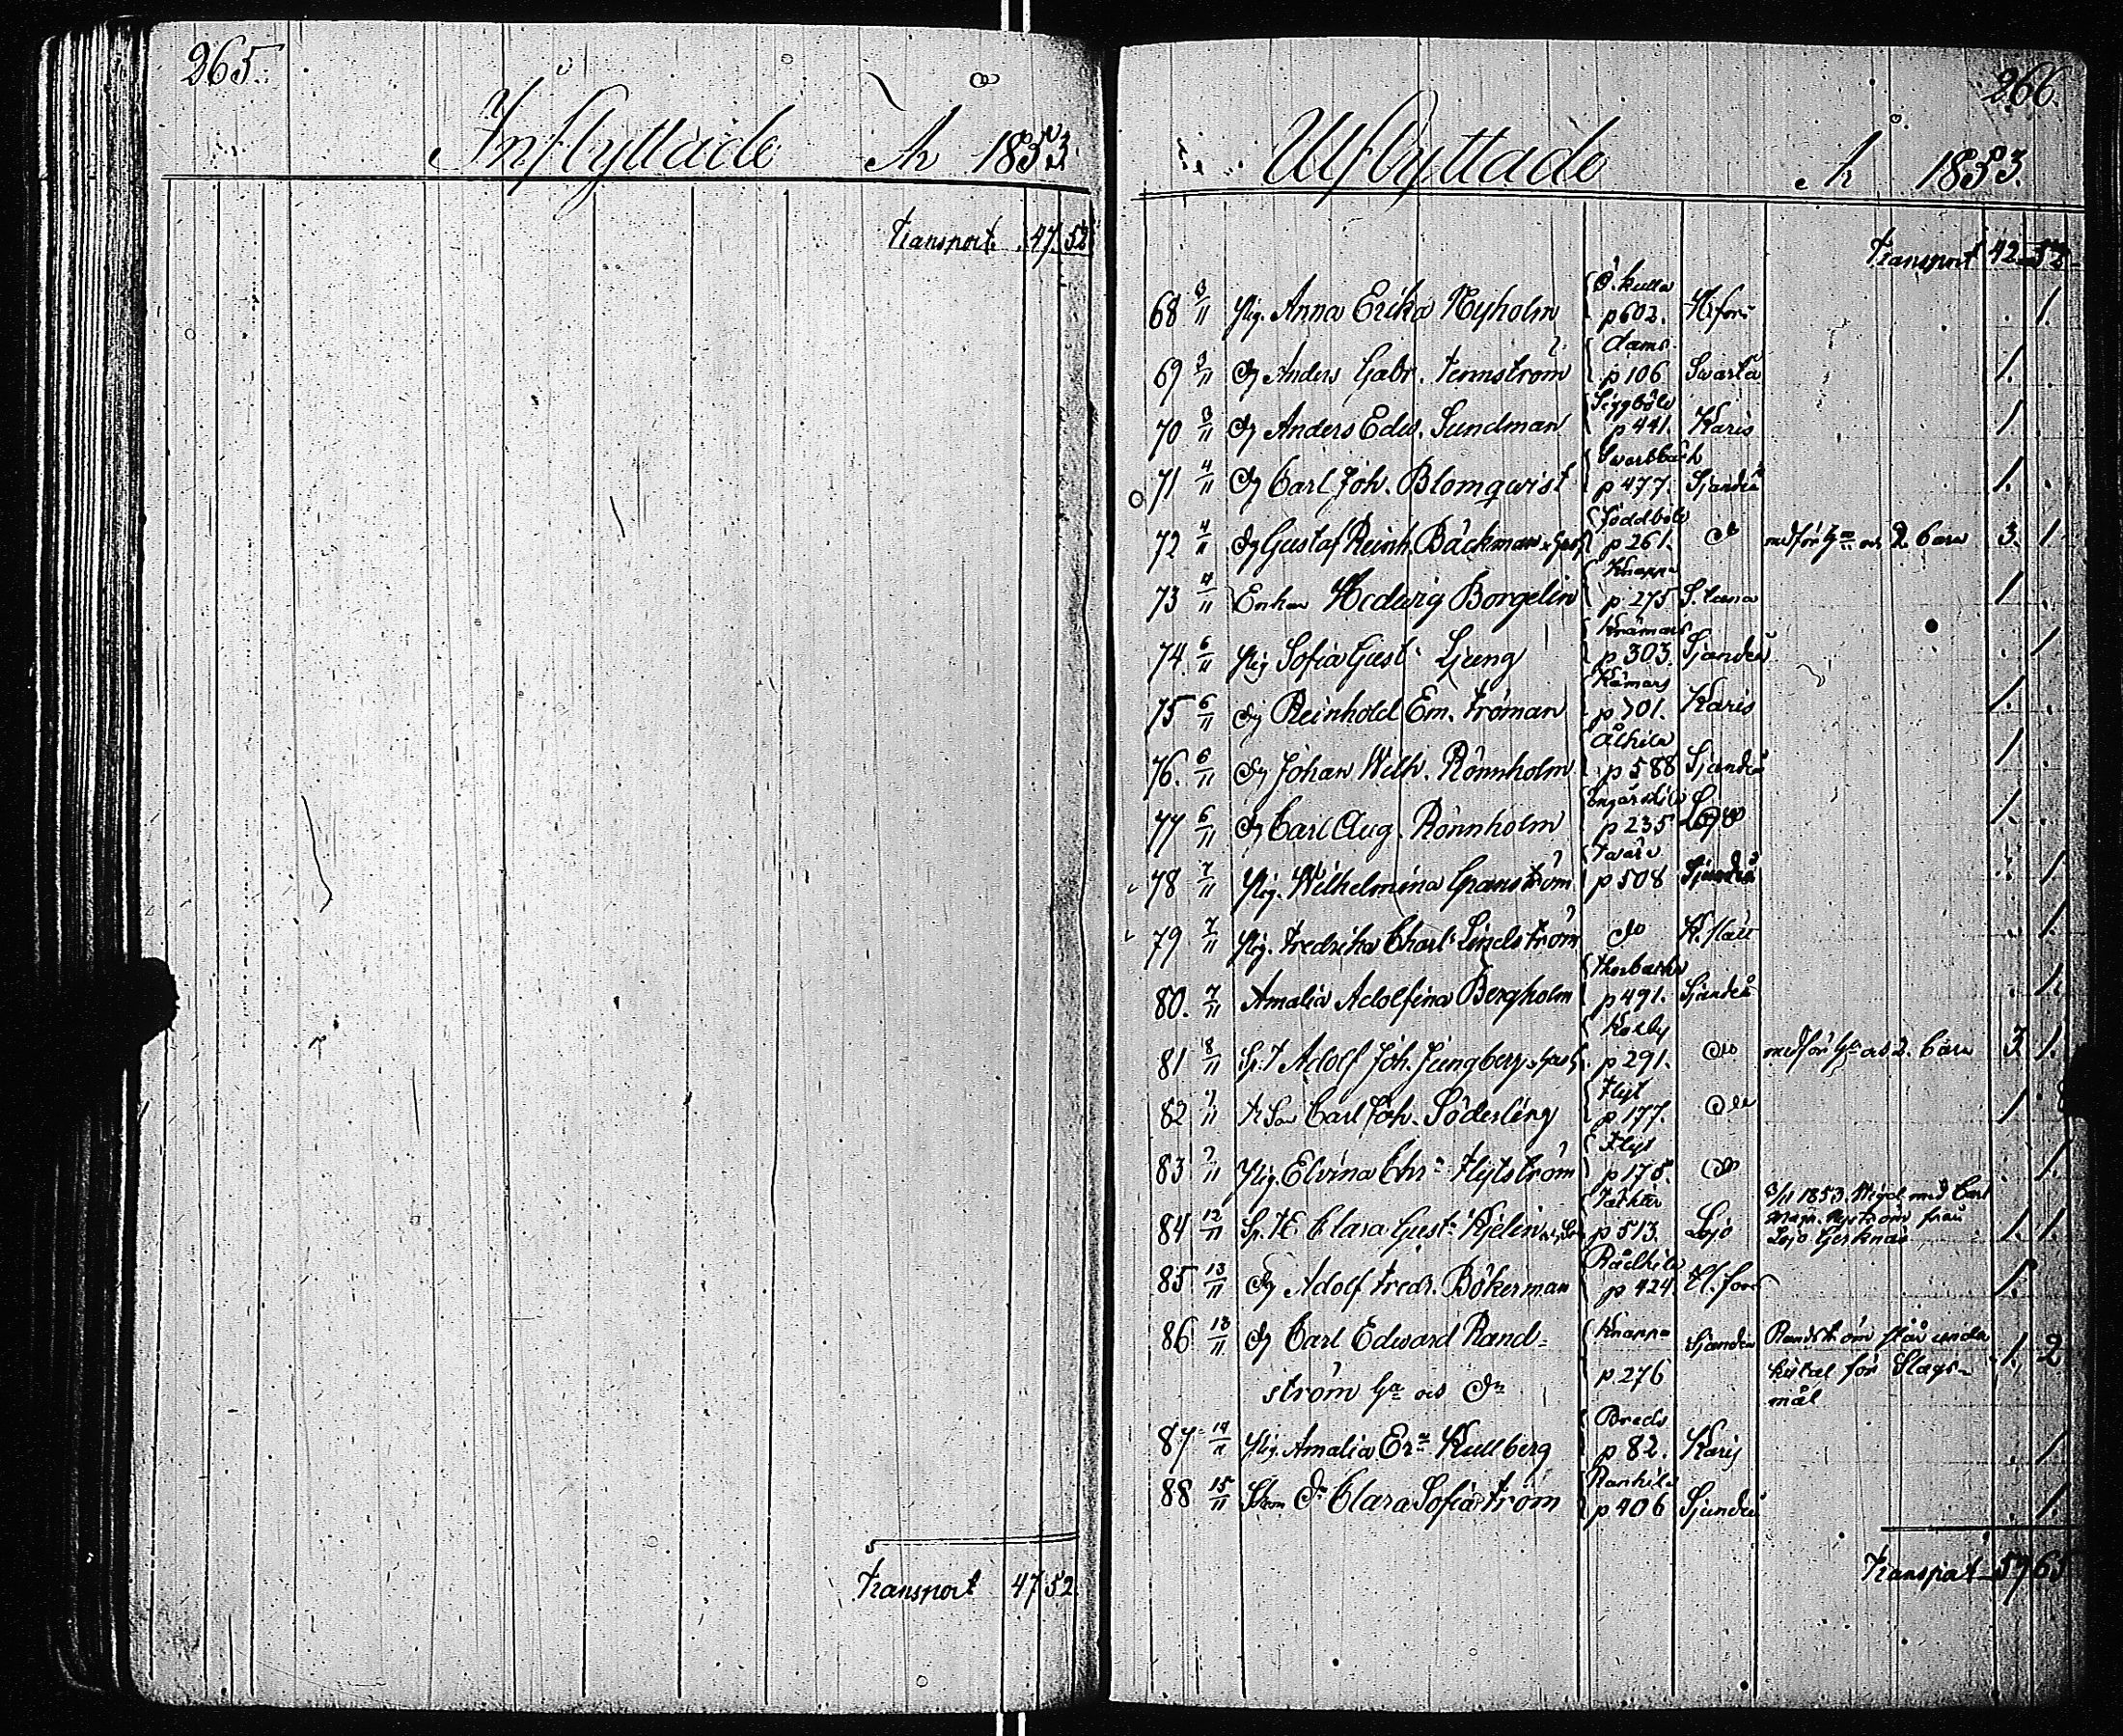 265.
Inflyttade År 1853.
Transport. 47. 52
Transport 47 52
266.
Utflyttade År 1853.
Transport 42 52
68 3/11 Pig. Anna Erika Nyholm Ö. kulla p 602. H:fors 1.
69 3/11 Dg Anders Gabr. Ternström Dams p 106 Swartå 1.
70 3/11 Dg Anders Edw. Sundman Siggböle p 441. Karis 1.
71 4/11 Dg Carl Joh. Blomqwist Swartbäck p 477. Sjundeå 1.
72 4/11 Dg Gustaf Reinh. Bäckman Joddböle p 261. do medför H:u och 2 barn 3. 1.
73 4/11 Enkan Hedwig Borgelin Knappe p 275 1
74. 6/11 Pig Sofia Gust. Ljung Krämars p 303. Sjundeå 1
75 6/11 Dg Reinhold Em. Tröman Krämars p 301. Karis 1.
76. 6/11 Dg Johan Wilh. Rönnholm Ålkila p 588 Sjundeå 1
77 6/11 Dg Carl Aug. Rönnholm Ingarskila p 235 Lojo 1.
78 7/11 Pig. Wilhelmina Granström p 508 Sjundeå 1
79 7/11 Pig. Fredrika Charl. Lindström do K. slätt 1
80. 7/11 Amalia Adolfina Bergholm Thorbacka p 491. Sjundeå 1.
81 8/11 Adolf Joh. Ljungberg Kålby p 291. do medför H:u och 2. barn 3 1.
82 9/11 Carl Joh. Söderling Flyt p 177. do 1
83 9/11 Pig. Elvina Chr:a Flytström Flyt p 175. do 1.
84 12/11 Clara Gust:a Kjelin p 513. Lojo 3/11 1853. Wigd med Carl
Magn. Nyström från
Lojo Gerknäs 1. 1.
85 13/11 Dg Adolf Fredr. Bökerman Rådkila p 424 H:fors 1.
86 13/11 Dg Carl Edward Rand- Knappe Sjundeå Randström står under 1. 2
ström H:u och D:r p. 276 för Slags-
mål
87 14/11 Pig. Amalia Er:a Kullberg Breds p 82. Karis 1
88 15/11 D:r Clara Sofia Ström Rankila p 406 Sjundeå 1.
Transport 59 65